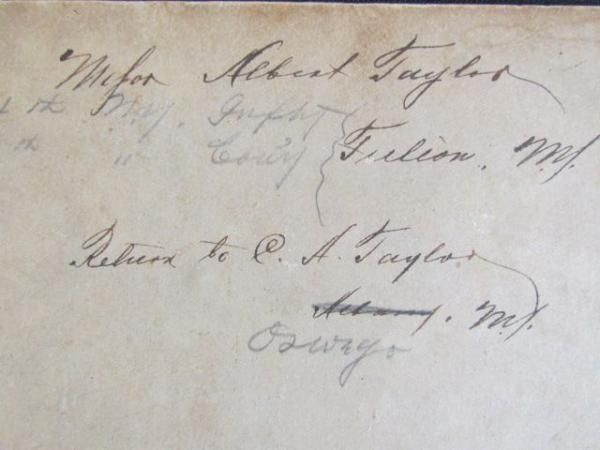 Major Albert Taylor
th N.Y. Infty
th " Cav'y } Fulton, N.Y.
Return to C. A. Taylor
Albany, N.Y.
Oswego